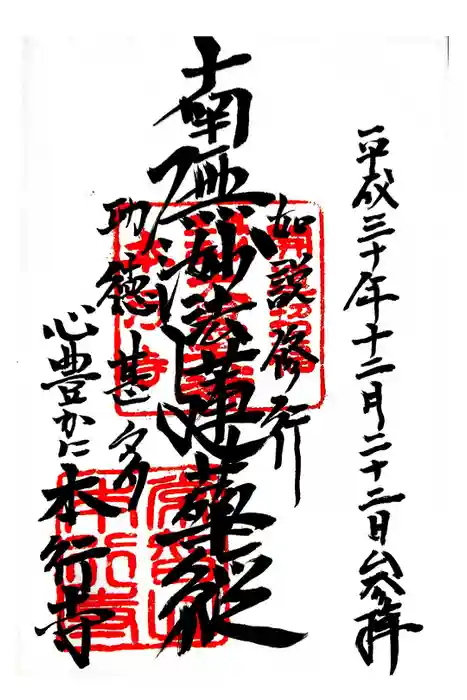 平成三十年十二月二十二日参拝
如説修行
南無妙法蓮華経
功徳甚多
心豊かに
本行寺